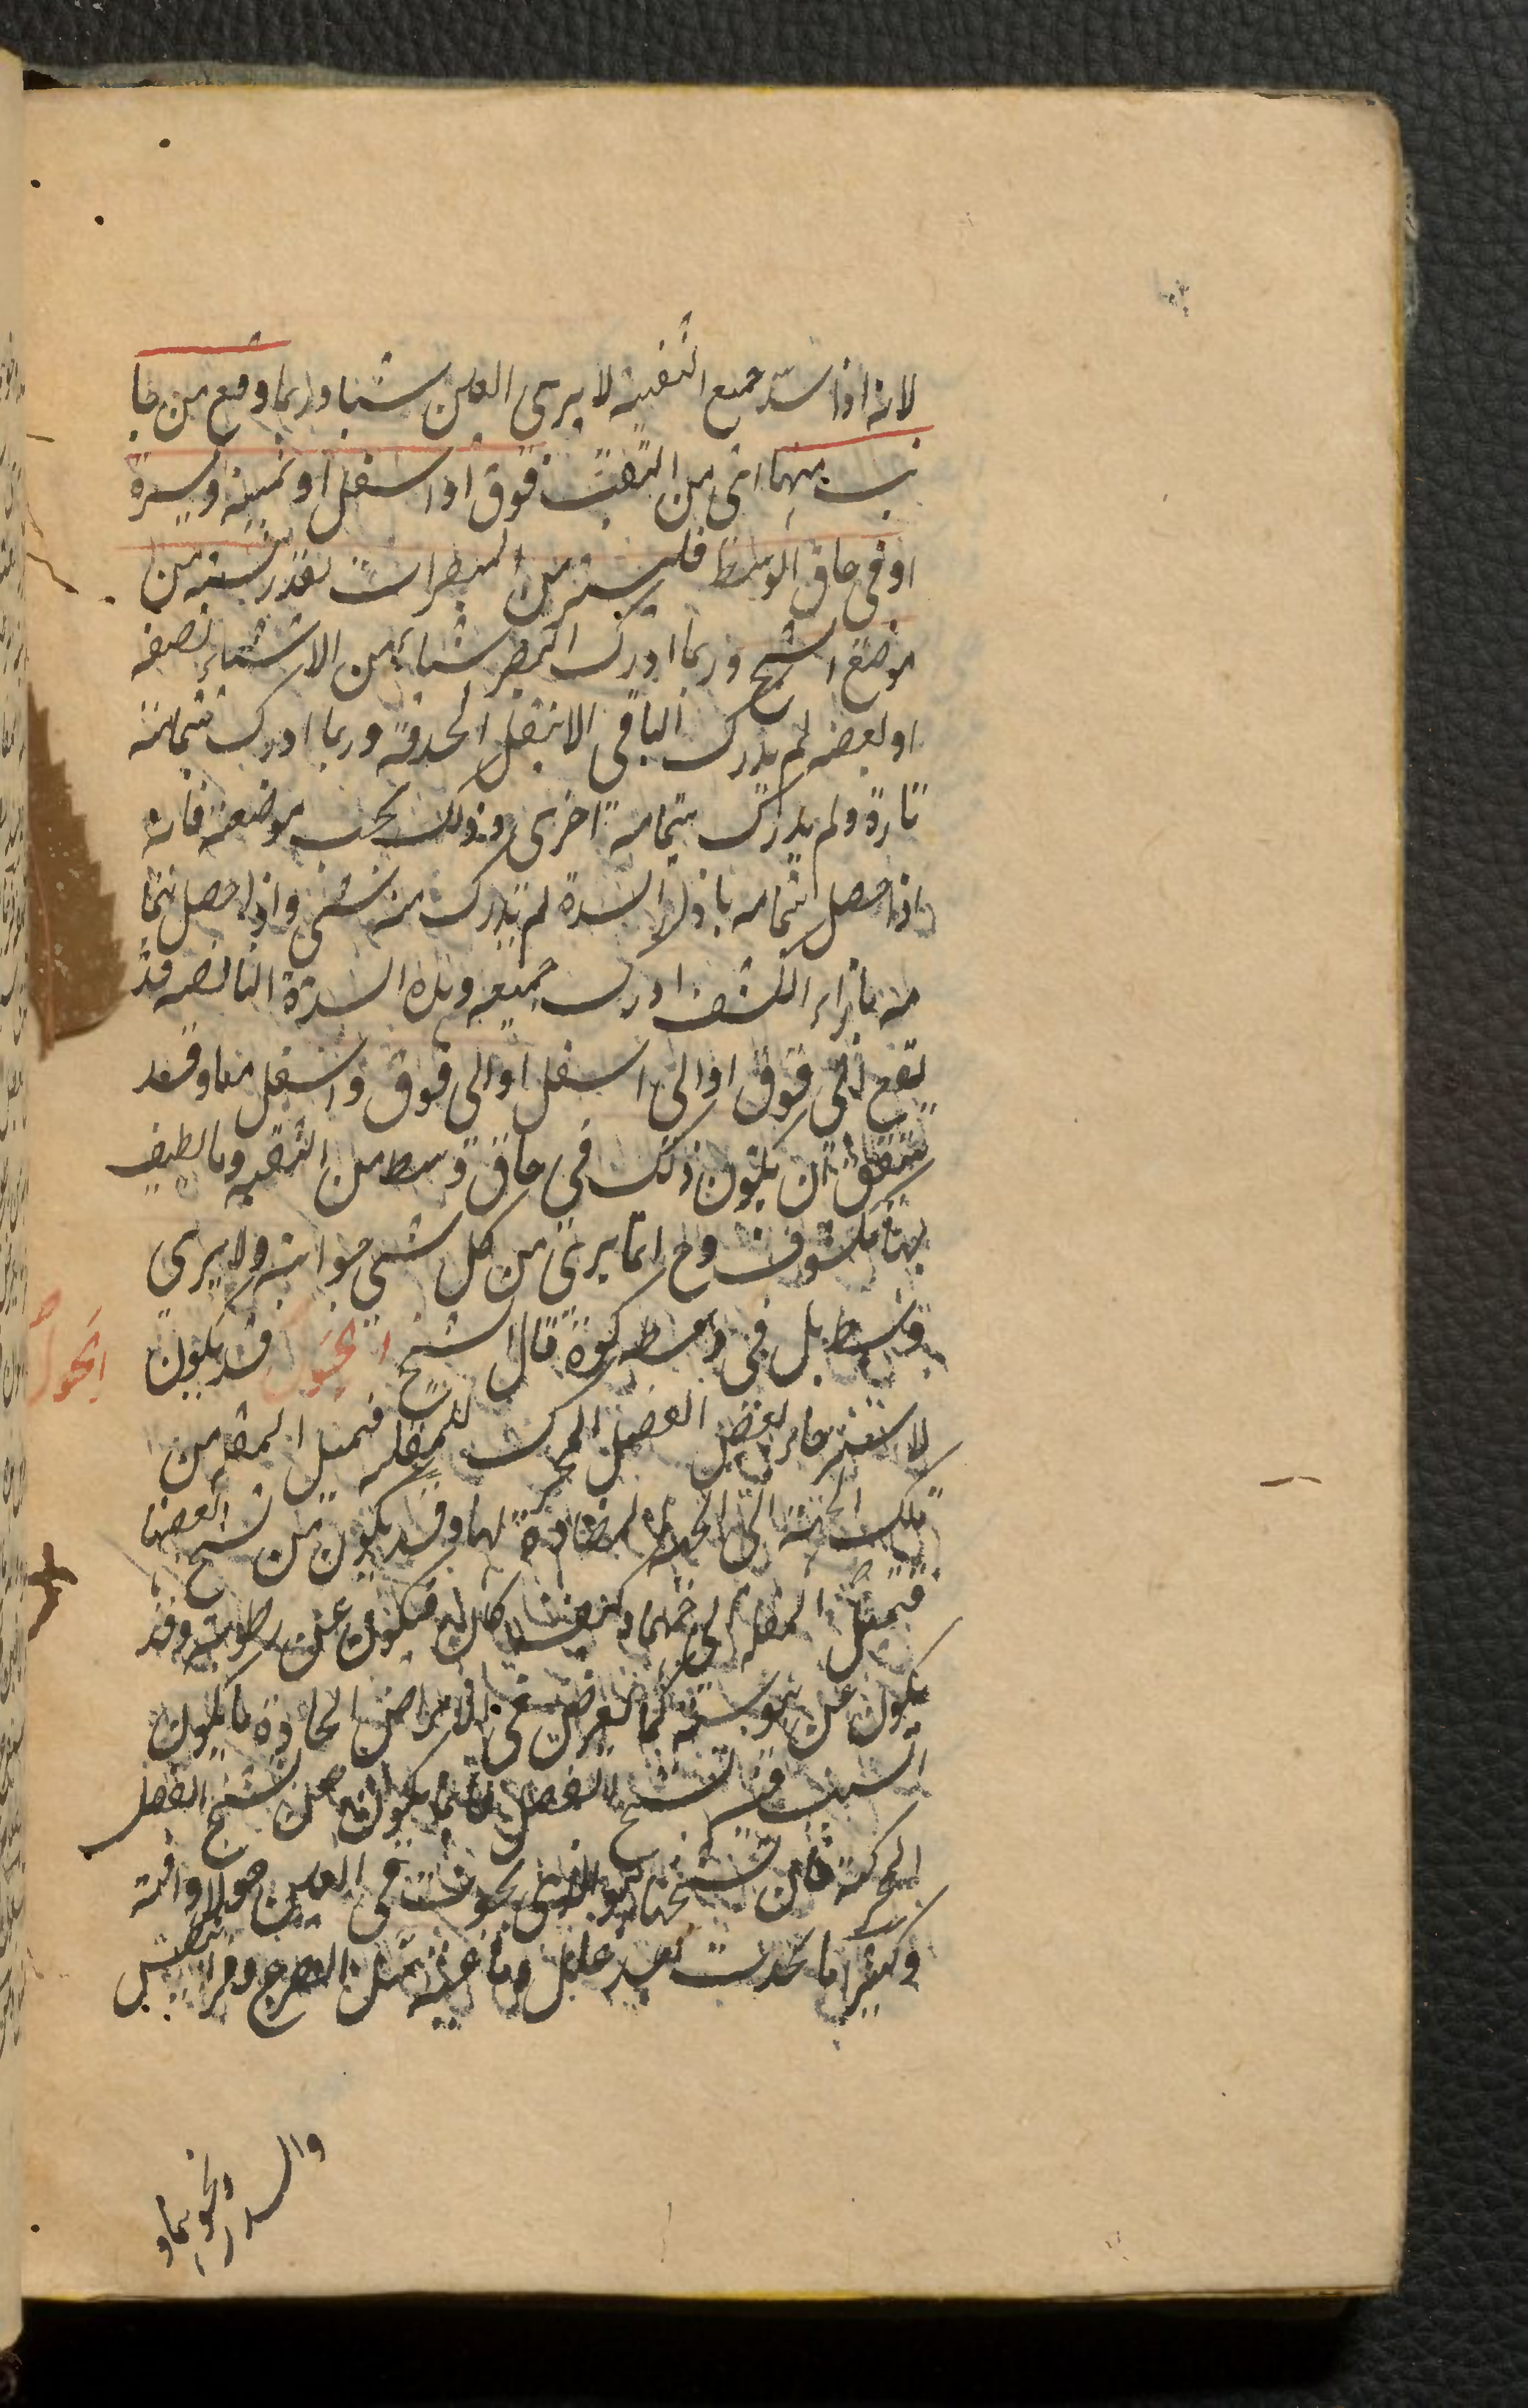 لانه اذا سدّ جميع الثقبة لا يرى العين شيئا وربما وقع من جا
نب منها اى من الثقبة فوق او اسفل او يمينه او يسرة
او فى حاق الوسط فليستر من المبصرات بقدر نسبته من
موضع الشبح وربما ادرك البصر شيئا من الاشياء نصفه
او بعضه لم يدرك الباقى الا بنقل الحدقة وربما ادرك بتمامه
تارة ولم يدرك بتمامه اخرى وذلك بحسب موضعه فانه
اذا حصل بتمامه بازاء السدة لم يدرك منه شى واذا حصل بتما
مه بازاء الكشف ادرك جميعه وهذه السدة الناقصه قد
تقع الى فوق او الى اسفل او الى فوق واسفل معا وقد
يتفق ان يكون ذلك فى حاق وسط من الثقبه وما يطيف
بها مكشوف وح انما يرى من كل شى جوانبه ولا يرى
وسطه بل فى وسطه كوة قال الشيخ الحول قد يكون
الحول
لاسترخاء بعض العضل المحرك للمقلة فتميل المقلة من
تلك الجهة الى الجهة المضادة لها وقد يكون من تشنج بعضها
فتميل المقلة الى جهتها وكيف كان فيكون عن رطوبة وقد
يكون عن يبوسة كما يعرض فى الامراض الحادة ما يكون
السبب فيه تشنج العضل فانما يكون عن تشنج العضل
المحركة فان تشنجها هو الذى يحدث فى العين حولا وافة
وكثيرا ما يحدث بعد علل دماغية مثل الصرع وقرانيطس
والسدر ونحوهما و